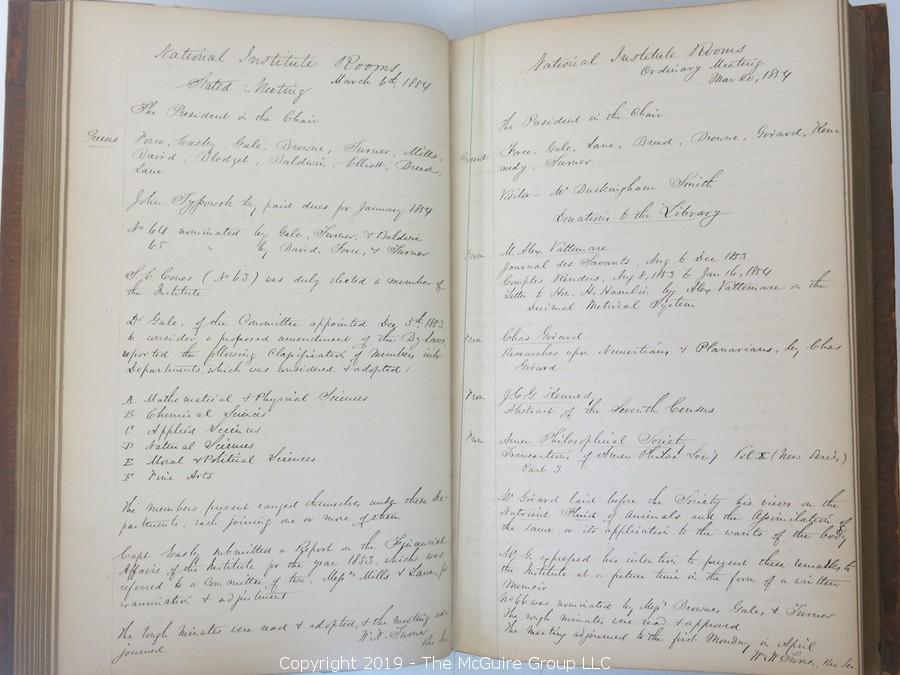 National Institute Rooms
Stated Meeting March 6th, 1854
The President in the Chair
Present
Force, Easby, Gale, Browne, Turner, Mills,
Baird, Blodget, Baldwin, Elliott, Breed,
Lane
John paid dues for January 1854
No 64 nominated by Gale, Turner, & Baldwin
65 " by Baird, Force, & Turner
S. E. Coues (No 63) was duly elected a member of
the Institute
Dr Gale, of the Committee appointed Dec 5th 1853
to consider a proposed amendment of the By Laws,
reported the following Classification of Members into
Departments, which was considered & adopted:
A Mathematical & Physical Sciences
B Chemical Sciences
C Applied Sciences
D Natural Sciences
E Moral & Political Sciences
F Fine Arts
The members present ranged themselves under these De-
partments, each joining one or more of them
Capt Easby submitted a Report on the Financial
Affairs of the Institute for the year 1853, which was
referred to a Committee of two, Messrs Mills & Lane, for
examination & adjustment
The rough minutes were read & adopted, & the meeting ad-
journed W. W. Turner
Rec Sec
National Institute Rooms
Ordinary Meeting
Mar 20, 1854
The President in the Chair
Present
Force, Gale, Lane, Breed, Browne, Girard, Kenn
nedy, Turner
Visitor - Mr Buckingham Smith
Donations to the Library
From M. Alex Vattemare
Journal des Savants, Aug to Dec 1853
Comptes Rendus, Aug 8, 1853 to Jan 16, 1854
Letter to Hon. H. Hamlin by Alex Vattemare on the
Decimal Metrical System
From Chas Girard
Researches upon Nemerteans & Planarians, by Chas
Girard
From J. C. G. Kennedy
Abstract of the Seventh Census
From Amer Philosophical Society
Transactions of Amer Philos Soc'y Vol X (New Series)
Part 3
Mr Girard laid before the Society his views on the
Nutricial Fluid of Animals and the Assimilation of
the same, or its application to the wants of the body
Mr G. expressed his intention to present these remarks to
the Institute at a future time in the form of a written
Memoir
No 66 was nominated by Messrs Browne, Gale, & Turner
The rough minutes were read & approved
The meeting adjourned to the first Monday in April
W. W. Turner, Rec Sec
Copyright 2019 - The McGuire Group LLC